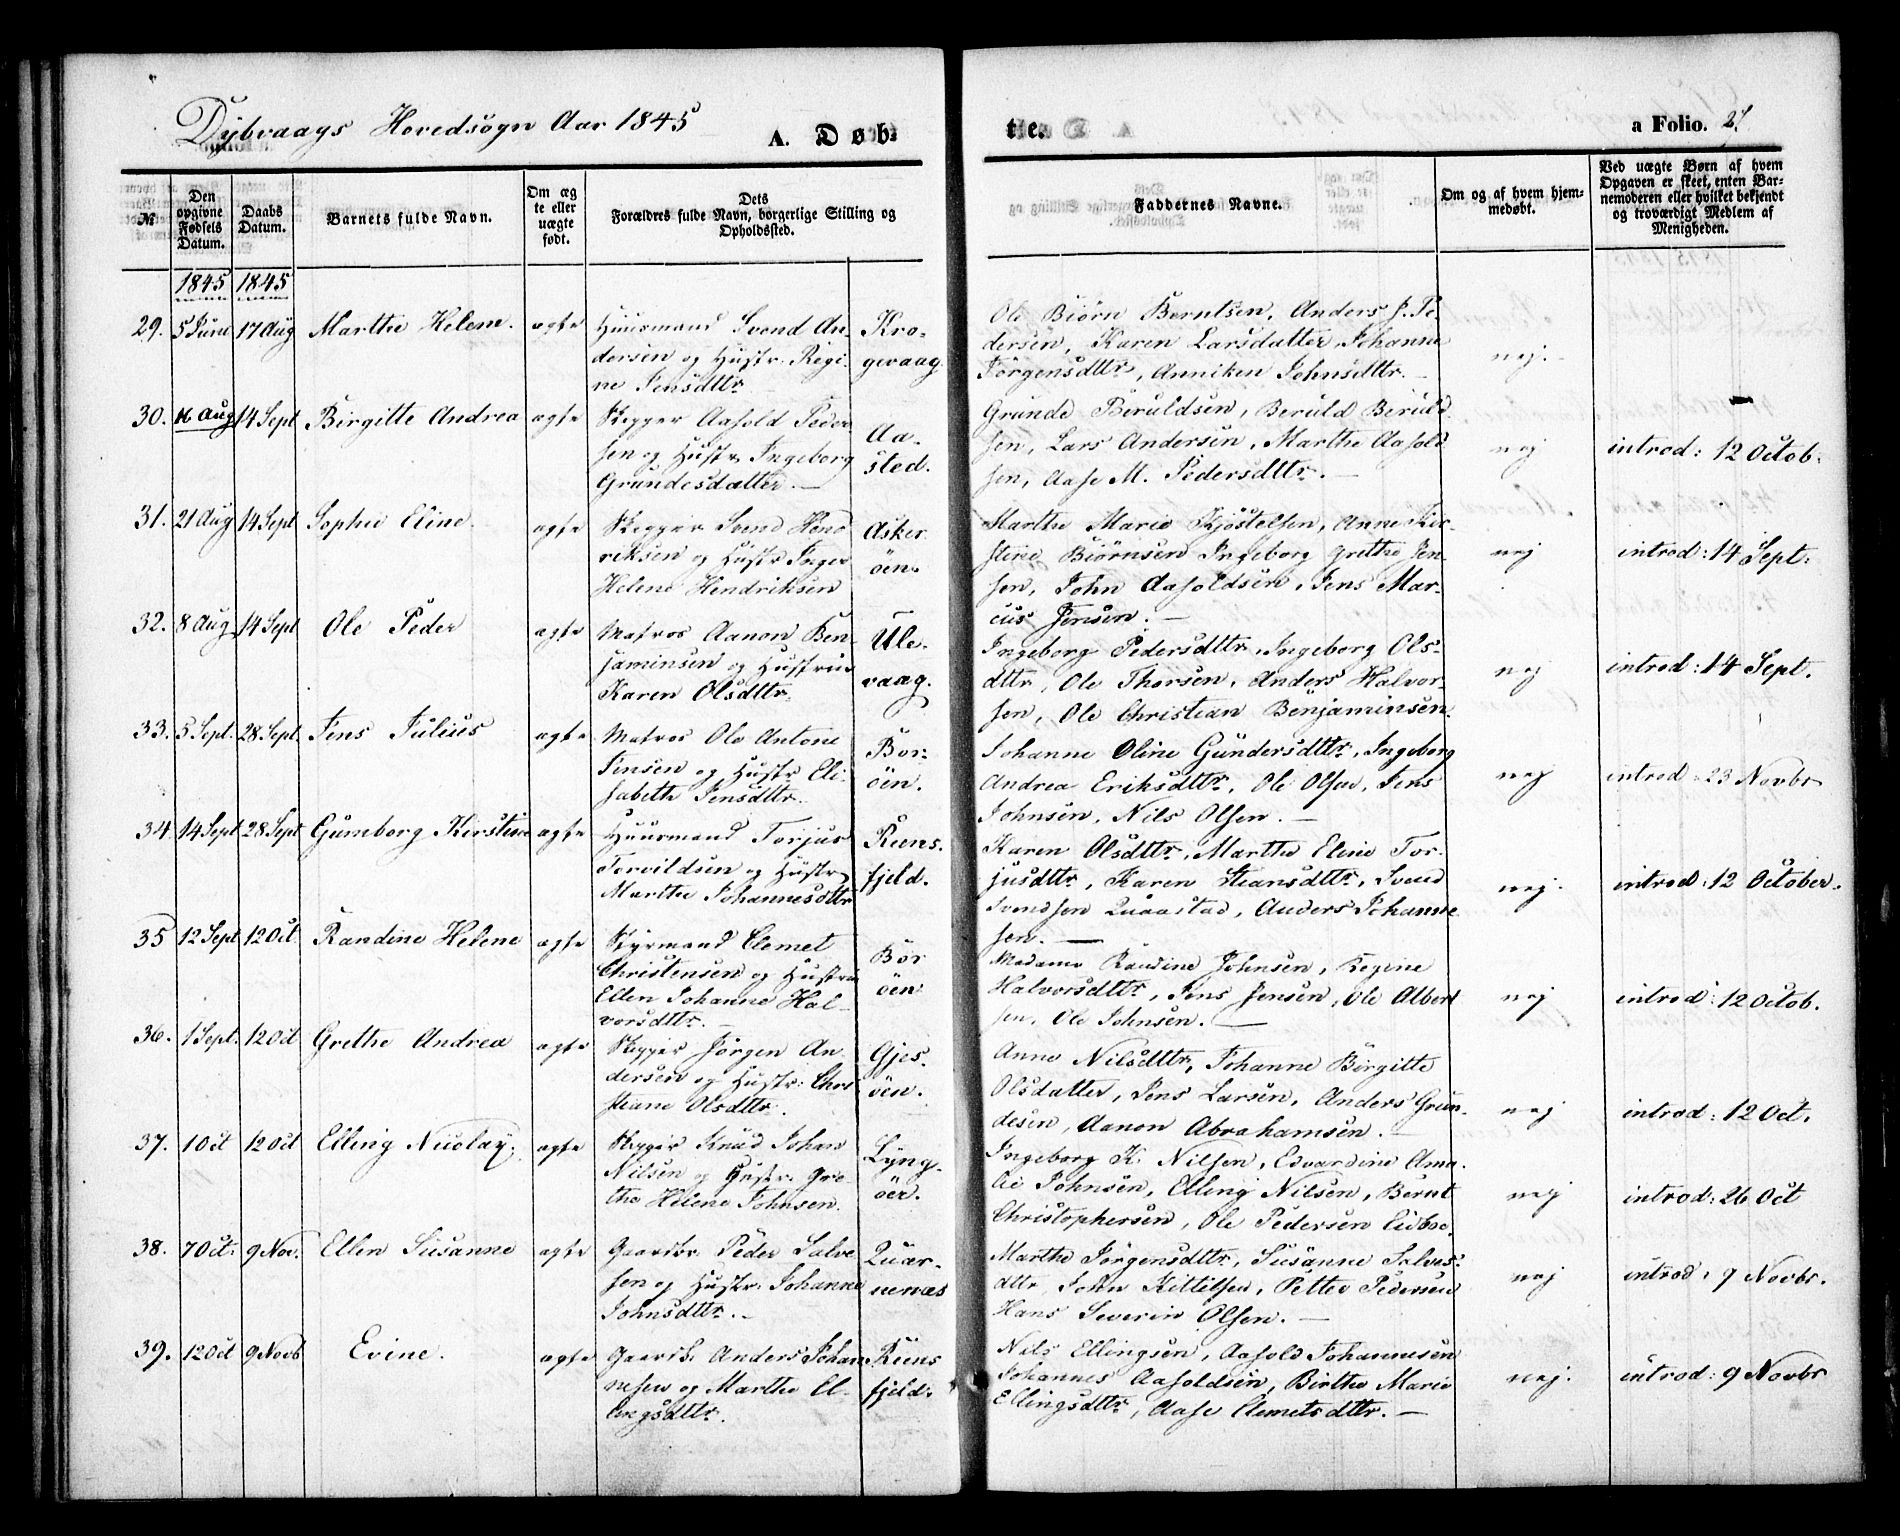 Dybvaags Hovedsogn Aar 1845
A. Døb-
te.
a Folio. 27
№
Den opgivne Fødsels Datum.
Daabs Datum.
Barnets fulde Navn.
Om ægte eller uægte født.
Dets Forældres fulde Navn, borgerlige Stilling og Opholdssted.
Faddernes Navne.
Om og af hvem hjemmedøbt.
Ved uægte Børn af hvem Opgaven er skeet, enten Barnemoderen eller hvilket bekjendt og troværdigt Medlem af Menigheden.
1845 1845
29. 5 Juni 17 Aug Marthe Helene. ægte
Huusmand Svend An-
dersen og Hustr. Regi-
ne Jensdttr.
Kro-
gevaag.
Ole Biörn Berntsen, Anders J. Pe-
dersen, Karen Larsdatter, Johanne
Jörgensdttr, Anniken Johnsdttr. —
nej.
30. 16 Aug 14 Sept Birgitte Andrea ægte
Skipper Aasold Peder-
sen og Hustr. Ingeborg
Grundesdatter. —
Aa-
sted.
Grunde Beruldsen, Beruld Beruld-
sen, Lars Andersen, Marthe Aasold-
sen, Aase M. Pedersdttr. —
nej
introd: 12 Octob.
31. 21 Aug 14 Sept Sophie Eline ægte
Skipper Svend Hend-
riksen og Hustr. Inger
Helene Hendriksen
Asker-
öen.
Marthe Marie Kjöstelsen, Anne Kir-
stine Biörnsen, Ingeborg Grethe Jen-
sen, John Aasoldsen, Jens Mar-
cus Jensen. —
nej
introd: 14 Sept.
32. 8 Aug 14 Sept Ole Peder ægte
Matros Aanon Ben-
jaminsen og Hustrue
Karen Olsdttr.
Ule-
vaag.
Ingeborg Pedersdttr, Ingeborg Ols-
dttr, Ole Thorsen, Anders Halvor-
sen, Ole Christian Benjaminsen.
nej
introd: 14 Sept.
33. 5 Sept. 28 Sept. Jens Julius ægte
Matros Ole Antone
Jensen og Hustr. Eli-
sabeth Jensdttr.
Bor-
öen.
Johanne Oline Gundersdttr, Ingeborg
Andrea Eriksdttr, Ole Olsen, Jens
Johnsen, Nils Olsen. —
nej
introd: 23 Novbr
34. 14 Sept 28 Sept Gumborg Kirstine ægte
Huusmand Torjus
Torvildsen og Hustr.
Marthe Johannesdttr
Reens-
fjeld.
Karen Olsdttr, Marthe Eline Tor-
jusdttr, Karen Steansdttr, Svend
Svendsen Quaastad, Anders Johanne-
sen. —
nej.
introd: 12 October.
35 12 Sept 12 Oct. Randine Helene ægte
Styrmand Clemet
Christensen og Hustrue
Ellen Johanne Hal-
vorsdttr. —
Bor
öen
Madame Randine Johnsen, Regine
Halvorsdttr, Jens Jensen, Ole Albert-
sen, Ole Johnsen. —
nej
introd: 12 Octob.
36. 1 Sept. 12 Oct Grethe Andrea ægte
Skipper Jörgen An-
dersen og Hustr: Chri-
stiane Olsdttr.
Gjes-
öen.
Anne Nilsdttr, Johanne Birgitte
Olsdatter, Jens Larsen, Anders Grun-
desen, Aanon Abrahamsen. —
nej
introd: 12 Oct.
37. 1 Oct 12 Oct Elling Nicolay. ægte
Skipper Knud Johan
Nilsen og Hustr. Gre-
the Helene Johnsen.
Lyng-
öer.
Ingeborg K. Nilsen, Edvardine Ama-
lie Johnsen, Elling Nilsen, Bernt
Christophersen, Ole Pedersen Eidboe.
nej
introd: 26 Oct
38. 7 Oct. 9 Nov. Ellen Susanne ægte
Gaardbr. Peder Salve-
sen og Hustr. Johanne
Johnsdttr. —
Quar-
nenæs
Marthe Jörgensdttr, Susanne Salves-
dttr, John Kittilsen, Petter Pedersen
Hans Severin Olsen. —
nej
introd: 9 Novbr.
39. 12 Oct 9 Novb Evine. ægte
Gaardb. Anders Johan-
nesen og Marthe El-
lingsdttr.
Reens
fjeld.
Nils Ellingsen, Aasold Johannesen
Johannes Aasoldsen, Birthe Marie
Ellingsdttr, Aase Clemetsdttr. —
nej.
introd: 9 Novbr